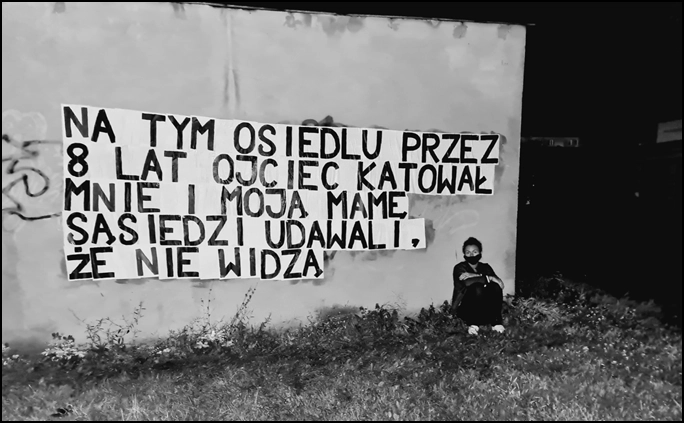 NA TYM OSIEDLU PRZEZ
8 LAT OJCIEC KATOWAŁ
MNIE I MOJĄ MAMĘ
SĄSIEDZI UDAWALI,
ŻE NIE WIDZĄ